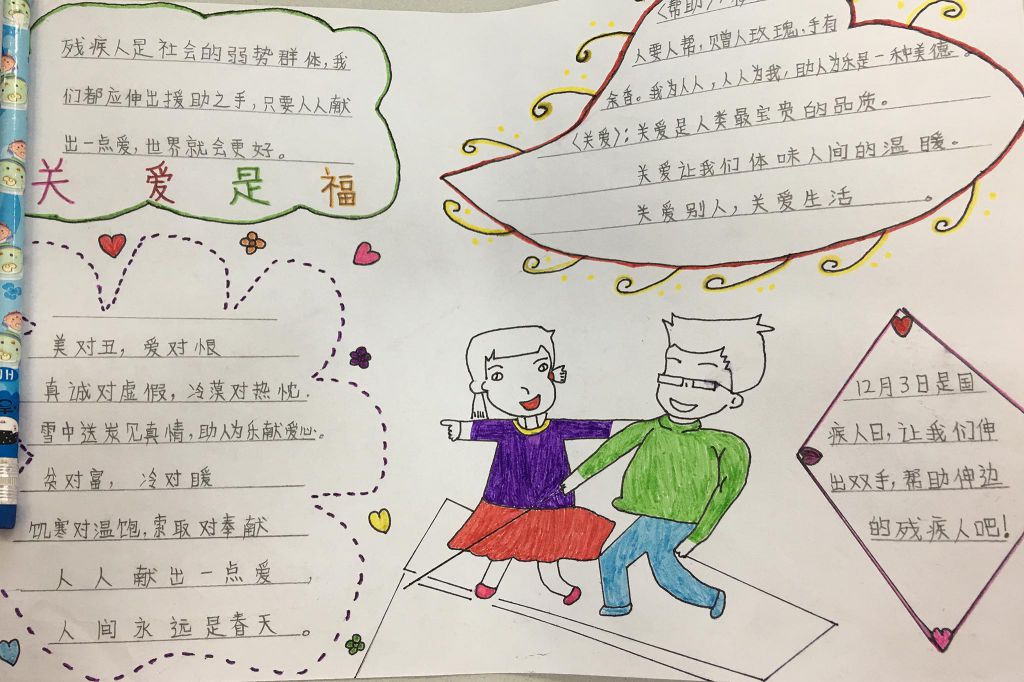 残疾人是社会的弱势群体,我
们都应伸出援助之手,只要人人献
出一点爱,世界就会更好。
关爱是福
《帮助》:
人要人帮,赠人玫瑰,手有
余香。我为人人,人人为我,助人为乐是一种美德。
《关爱》:关爱是人类最宝贵的品质。
关爱让我们体味人间的温暖。
关爱别人,关爱生活。
美对丑,爱对恨
真诚对虚假,冷漠对热忱.
雪中送炭见真情,助人为乐献爱心。
贫对富,冷对暖
饥寒对温饱,索取对奉献
人人献出一点爱,
人间永远是春天。
12月3日是国
疾人日,让我们伸
出双手,帮助伸边
的残疾人吧!